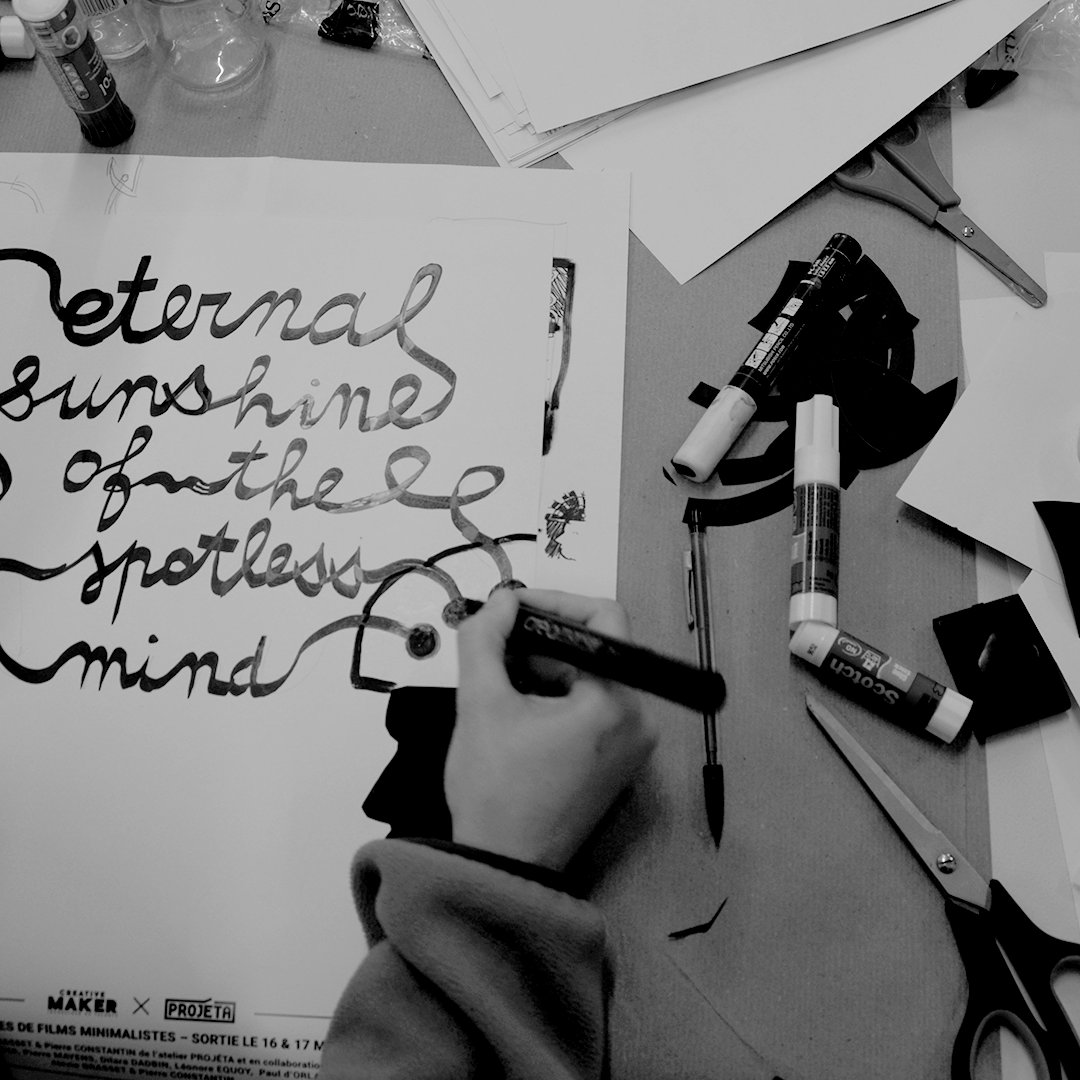 eternal
sunshine
of the
spotless
mind
Scotch
CREATIVE
MAKER
PROJÉTA
ES DE FILMS MINIMALISTES – SORTIE LE 16 & 17 M
ASSET & Pierre CONSTANTIN de l'atelier PROJÉTA et en collaboratio
Pierre MAYENS, Dilara DADBIN, Léonore EQUOY, Paul d'ORL
BRASSET & Pierre CONSTANTIN